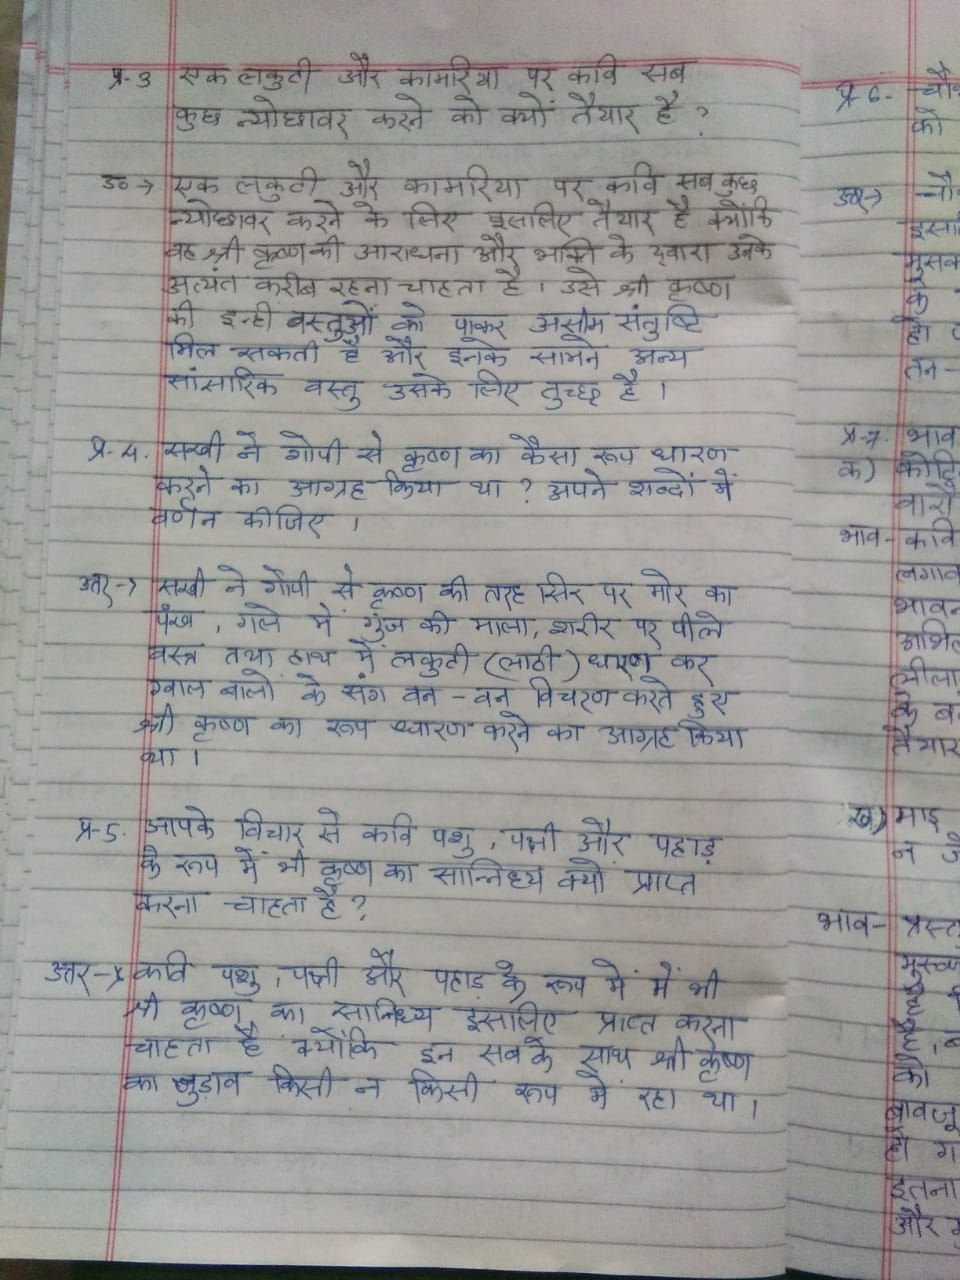 प्र-3 एक लकुटी और कामरिया पर कवि सब
कुछ न्योछावर करने को क्यों तैयार है ?
उ० → एक लकुटी और कामरिया पर कवि सब कुछ
न्योछावर करने के लिए इसलिए तैयार है क्योंकि
वह श्री कृष्ण की आराधना और भक्ति के द्वारा उनके
अत्यंत करीब रहना चाहता है । उसे श्री कृष्ण
की इन्ही वस्तुओं को पाकर असीम संतुष्टि
मिल सकती है और इनके सामने अन्य
सांसारिक वस्तु उसके लिए तुच्छ है ।
प्र-4. सखी ने गोपी से कृष्ण का कैसा रूप धारण
करने का आग्रह किया था ? अपने शब्दों में
वर्णन कीजिए ।
उत्तर → सखी ने गोपी से कृष्ण की तरह सिर पर मोर का
पंख , गले में गुंज की माला, शरीर पर पीले
वस्त्र तथा हाथ में लकुटी (लाठी) धारण कर
ग्वाल बालों के संग वन - वन विचरण करते हुए
श्री कृष्ण का रूप धारण करने का आग्रह किया
था ।
प्र-5. आपके विचार से कवि पशु , पक्षी और पहाड़
के रूप में भी कृष्ण का सान्निध्य क्यों प्राप्त
करना चाहता है ?
उत्तर → कवि पशु , पक्षी और पहाड़ के रूप में में भी
श्री कृष्ण का सानिध्य इसलिए प्राप्त करना
चाहता है क्योंकि इन सबके साथ श्री कृष्ण
का जुड़ाव किसी न किसी रूप में रहा था ।
प्र-6.
को
उत्तर →
के
हो
तन -
प्र-7. भाव
क)
भाव - कवि
तैयार
ख) माइ
न
भाव -
को
हो
इतना
और